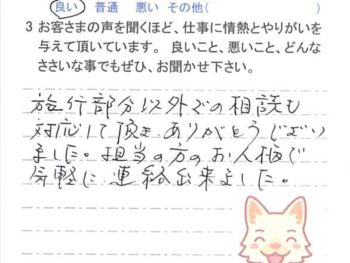 良い 普通 悪い その他(
3 お客さまの声を聞くほど、仕事に情熱とやりがいを
与えて頂いています。 良いこと、悪いこと、どんな
ささいな事でもぜひ、お聞かせ下さい。
施行部分以外での相談も
対応して頂き、ありがとうござい
ました。担当の方のお人柄で
気軽に連絡出来ました。